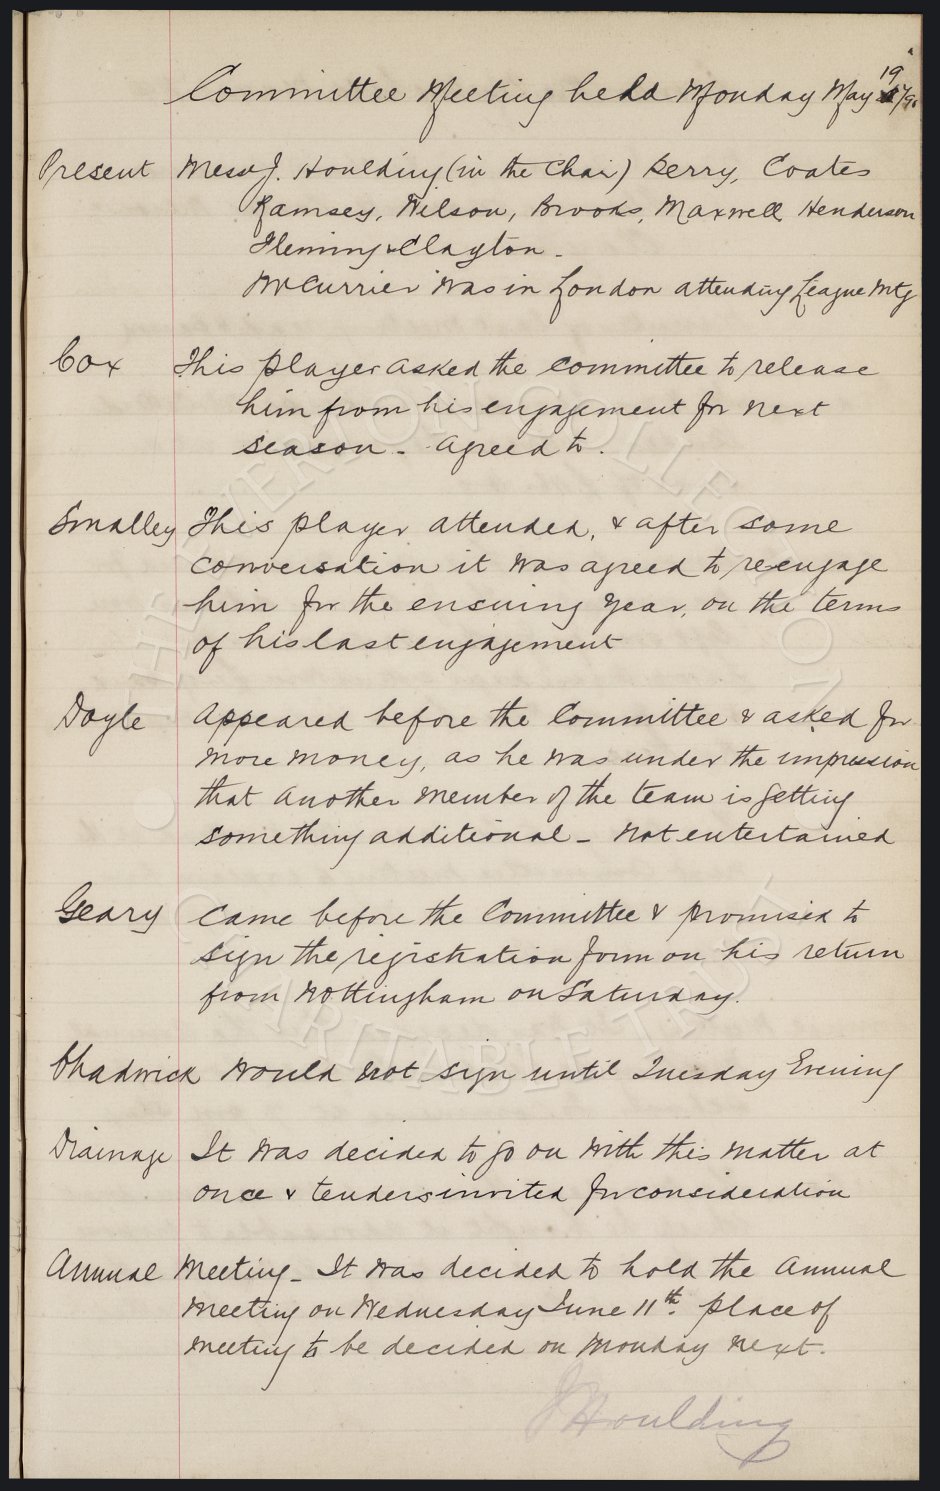 Committee Meeting held Monday May 19/90
Present Messrs J. Houlding (in the Chair) Berry, Coates
Ramsey, Wilson, Brooks, Maxwell, Henderson
Fleming & Clayton -
Mr Currier was in London attending League Mtg
Cox This player asked the committee to release
him from his engagement for next
season - agreed to.
Smalley This player attended, & after some
conversation it was agreed to reengage
him for the ensuing year, on the terms
of his last engagement
Doyle Appeared before the Committee & asked for
more money, as he was under the impression
that another member of the team is getting
something additional - Not entertained
Geary Came before the Committee & promised to
sign the registration form on his return
from Nottingham on Saturday.
Chadwick Would not sign until Tuesday Evening
Drainage It was decided to go on with this matter at
once & tenders invited for consideration
Annual Meeting - It was decided to hold the Annual
Meeting on Wednesday June 11th. place of
meeting to be decided on Monday next.
J Houlding
THE EVERTON COLLECTION
CHARITABLE TRUST